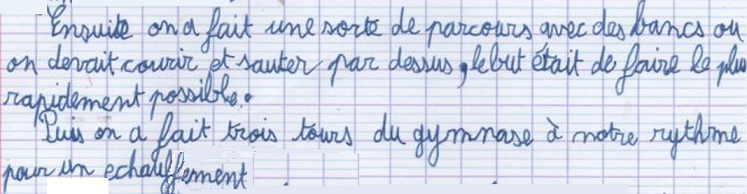 Ensuite on a fait une sorte de parcours avec des bancs ou
on devait courir et sauter par dessus, le but était de faire le plus
rapidement possible.
Puis on a fait trois tours du gymnase à notre rythme
pour un echauffement